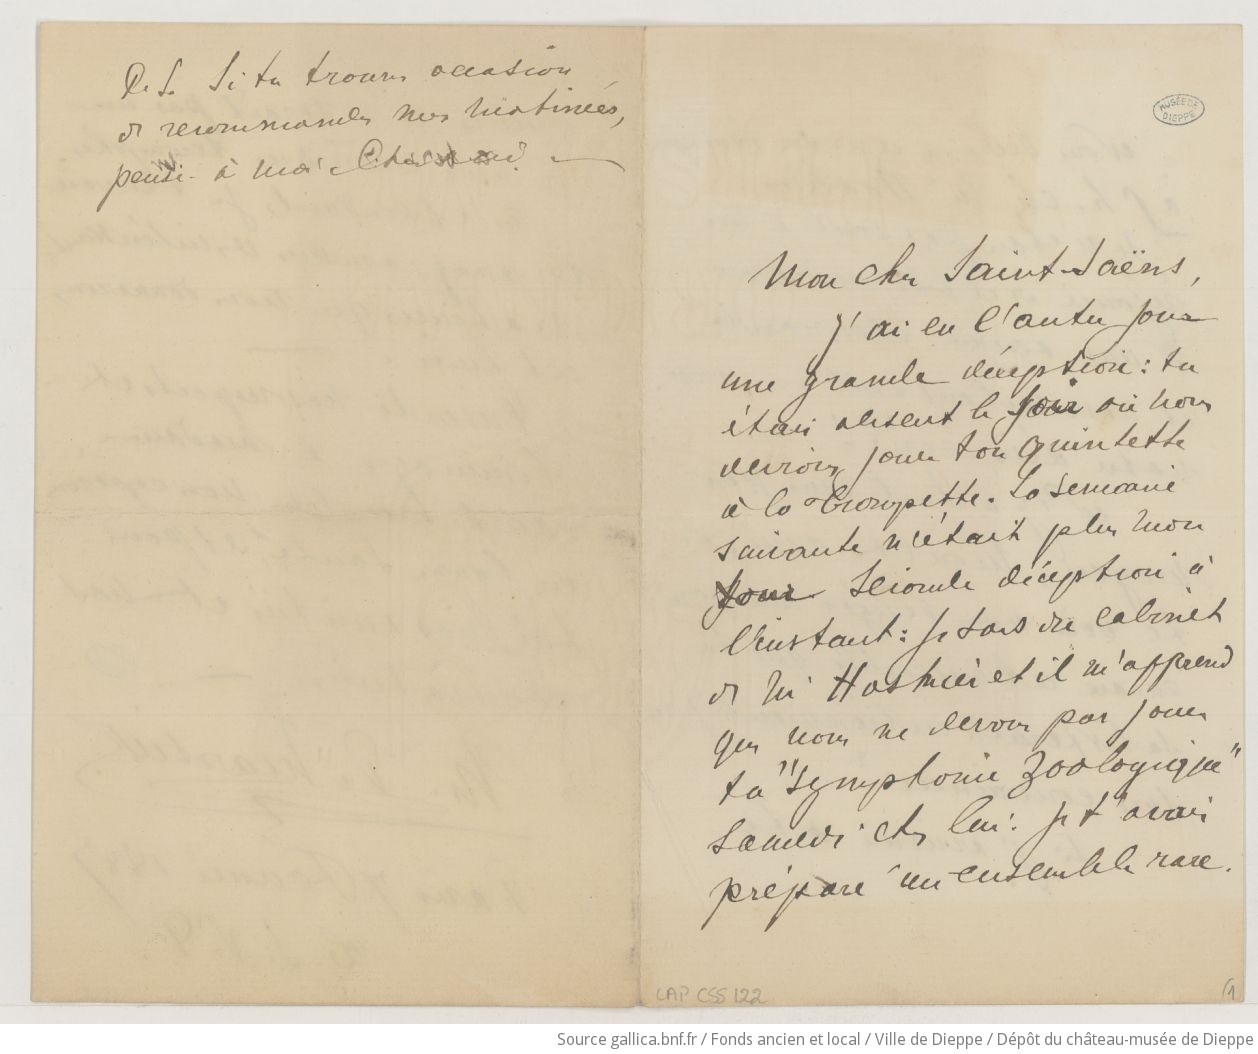 P.S. Si tu trouves occasion
de recommander nos matinées,
pense à moi
MUSÉE DE
DIEPPE
Mon cher Saint-Saëns,
j'ai eu l'autre jour
une grande déception : tu
étais absent le jour où nous
devions jouer ton quintette
à la Trompette. La semaine
suivante n'était plus mon
jour. Seconde déception à
l'instant : je sors du cabinet
de Mr et il m'apprend
que nous ne devons pas jouer
ta "Symphonie Zoologique"
Samedi chez lui. Je t'avais
préparé un ensemble rare.
LAP CSS 122
1
Source gallica.bnf.fr / Fonds ancien et local / Ville de Dieppe / Dépôt du château-musée de Dieppe